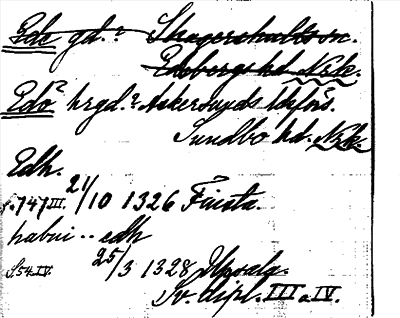 Edh gd.² Skagershults sn.
Edsbergs hd. Nrk.
Edö² hrgd.² Askersunds ldsförs.
Sundbo hd. Nrk.
Edh.
s. 747 III. 21/10 1326 Firista.
habui .. edh
S 54 IV. 25/3 1328 Upsala.
Sv. dipl. III o IV.